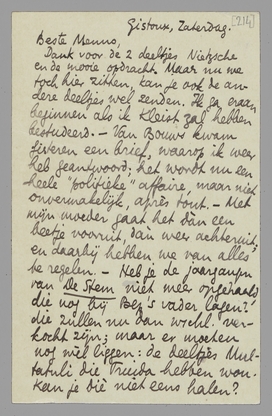 Gistoux, Zaterdag. [214]
Beste Menno,
Dank voor de 2 deeltjes Nietzsche
en de mooie opdracht. Maar nu we
toch hier zitten, kan je ook de an-
dere deeltjes wel zenden. Ik ga eraan
beginnen als ik Kleist zal hebben
bestudeerd. — Van Bouws kwam
gisteren een brief, waarop ik weer
heb geantwoord; het wordt nu een
heele "politieke" affaire, maar niet
onvermakelijk, après tout. — Met
mijn moeder gaat het dan een
beetje vooruit, dan weer achteruit,
en daarbij hebben we van alles
te regelen. — Heb je de jaargangen
van De Stem niet meer opgehaald
die nog bij Bep's vader lagen?
die zullen nu dan wschl. ver-
kocht zijn; maar er moeten
nog wel liggen: de deeltjes Mul-
tatuli die Truida hebben wou.
Kan je die niet eens halen?